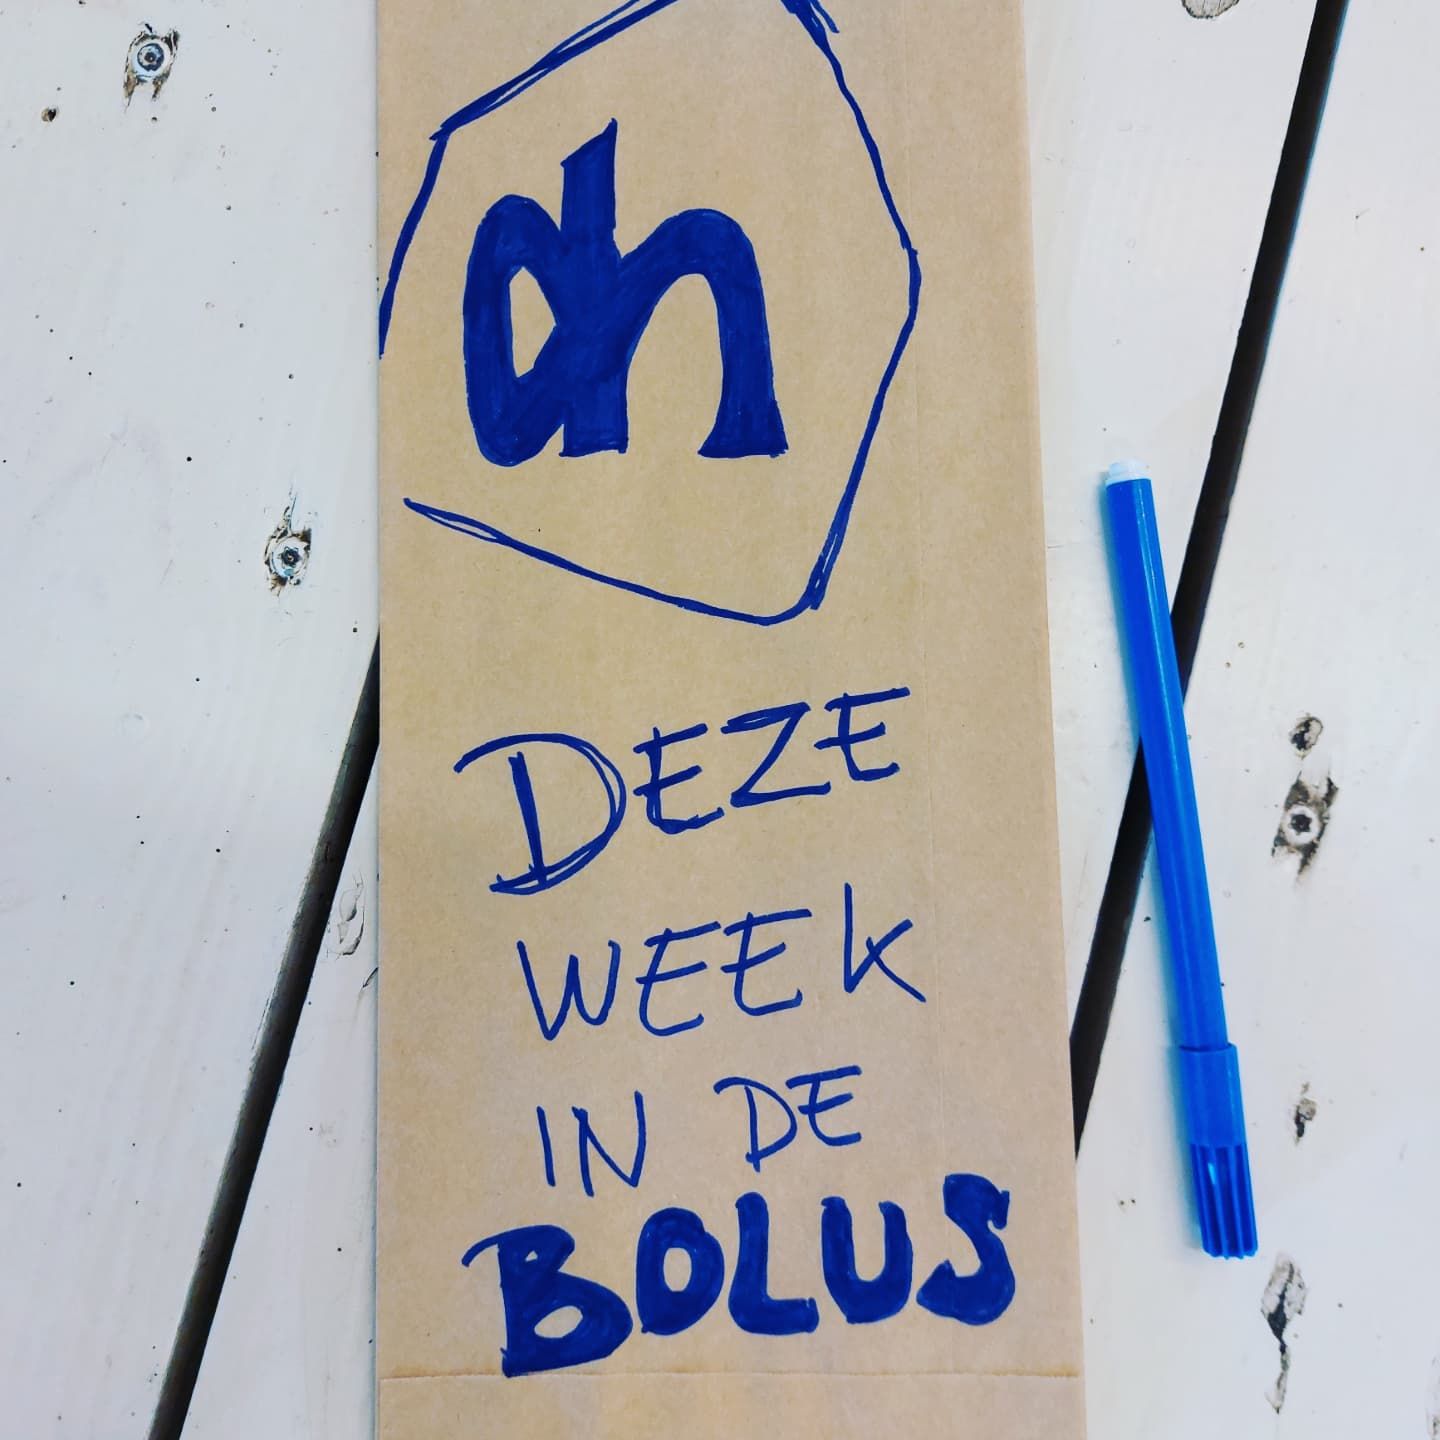 dh
DEZE
WEEK
IN DE
BOLUS